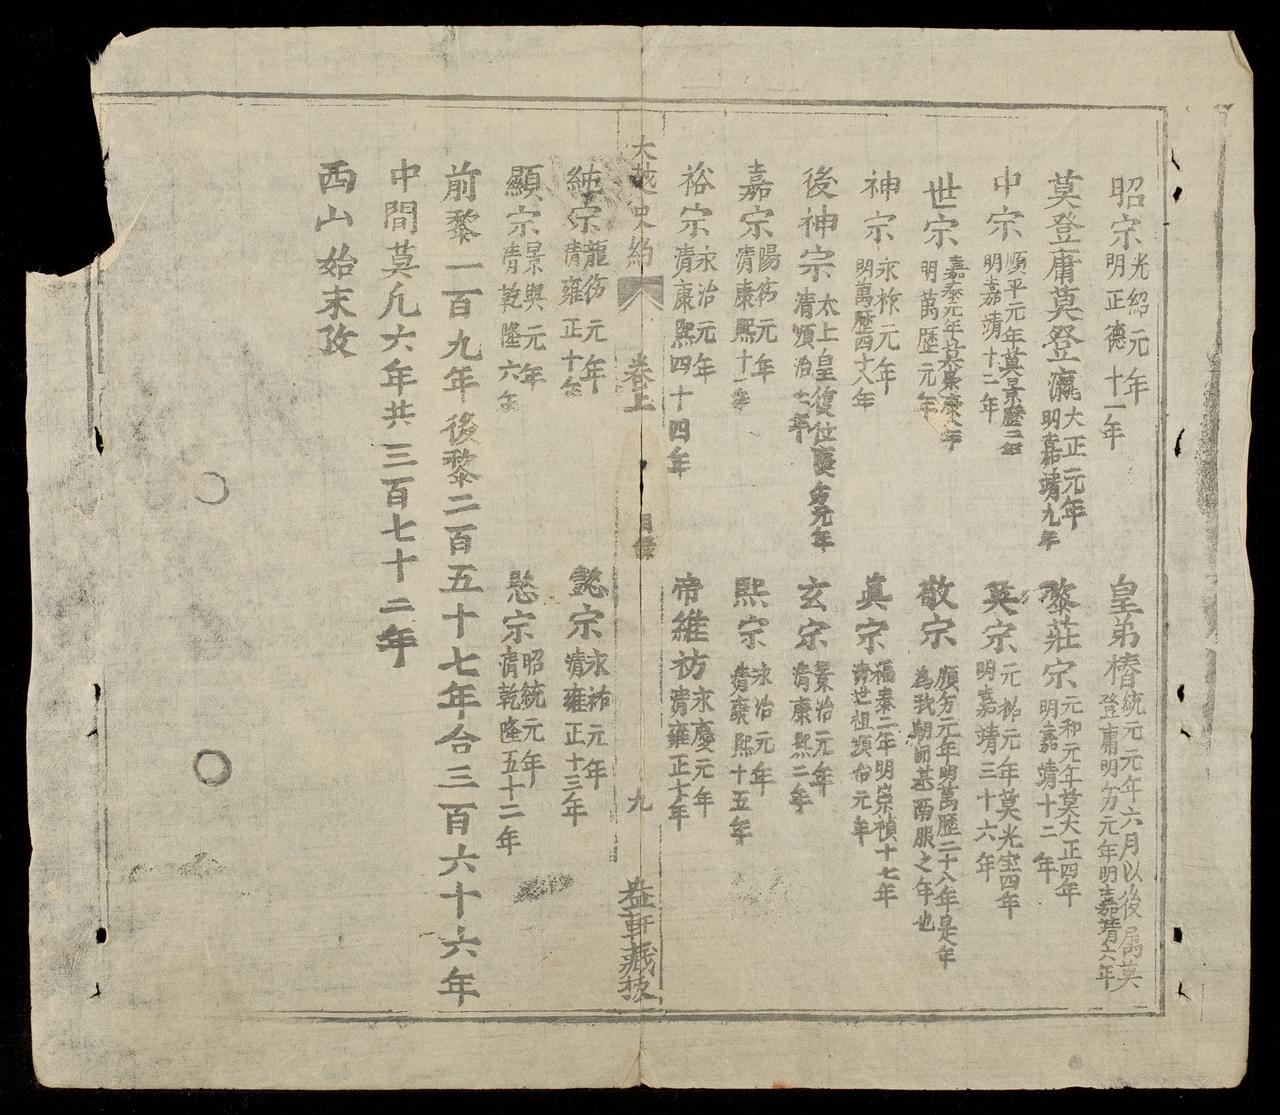 昭宗光紹元年明正德十一年
皇弟椿統元元年六月以後属莫登庸明方元年明嘉靖六年
莫登庸莫登瀛大正元年明嘉靖九年
黎莊宗元和元年莫大正四年明嘉靖十二年
中宗順平元年莫景歷二年明嘉靖十二年
英宗元祐元年莫光宝四年明嘉靖三十六年
世宗嘉泰元年莫崇康八年明萬歷元年
敬宗順方元年明萬歷二十八年是年為我朝肇基南服之年也
神宗永祚元年明萬歷四十八年
真宗福泰二年明崇禎十七年清世祖順治元年
後神宗太上皇復位慶方元年清順治六年
玄宗景治元年清康熙二年
嘉宗陽德元年清康熙十一年
熙宗永治元年清康熙十五年
裕宗永治元年清康熙四十四年
帝維祊永慶元年清雍正七年
大越史約 卷上 目錄 九 益軒藏板
純宗龍德元年清雍正十年
懿宗永祐元年清雍正十三年
顯宗景興元年清乾隆六年
愍宗昭統元年清乾隆五十二年
前黎一百九年後黎二百五十七年合三百六十六年
中間莫凢六年共三百七十二年
西山始末攷